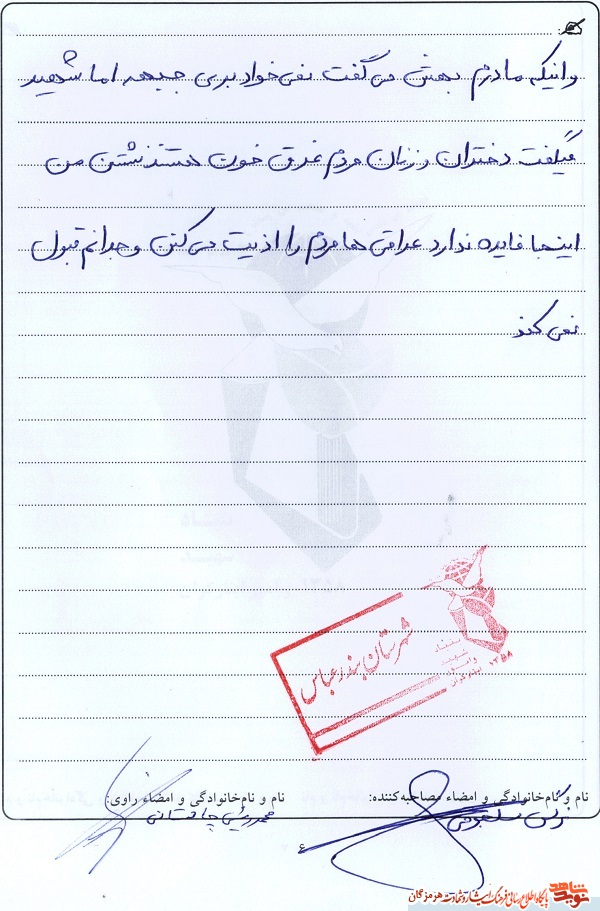 و اینکه مادرم بهش می گفت نمی خواد بری جبهه اما شهید
میگفت دختران و زنان مردم غرق خون هستند نشتن من
اینجا فایده ندارد عراقی ها مردم را اذیت می کنن وجدانم قبول
نمی کند
شهرستان بندرعباس
بنیاد
شهید
۱۳۵۸
نام و نام‌خانوادگی و امضاء مصاحبه‌کننده:
نام و نام‌خانوادگی و امضاء راوی:
نرگس
۴
نوید شاهد
پایگاه اطلاع رسانی فرهنگ ایثار و شهادت هرمزگان